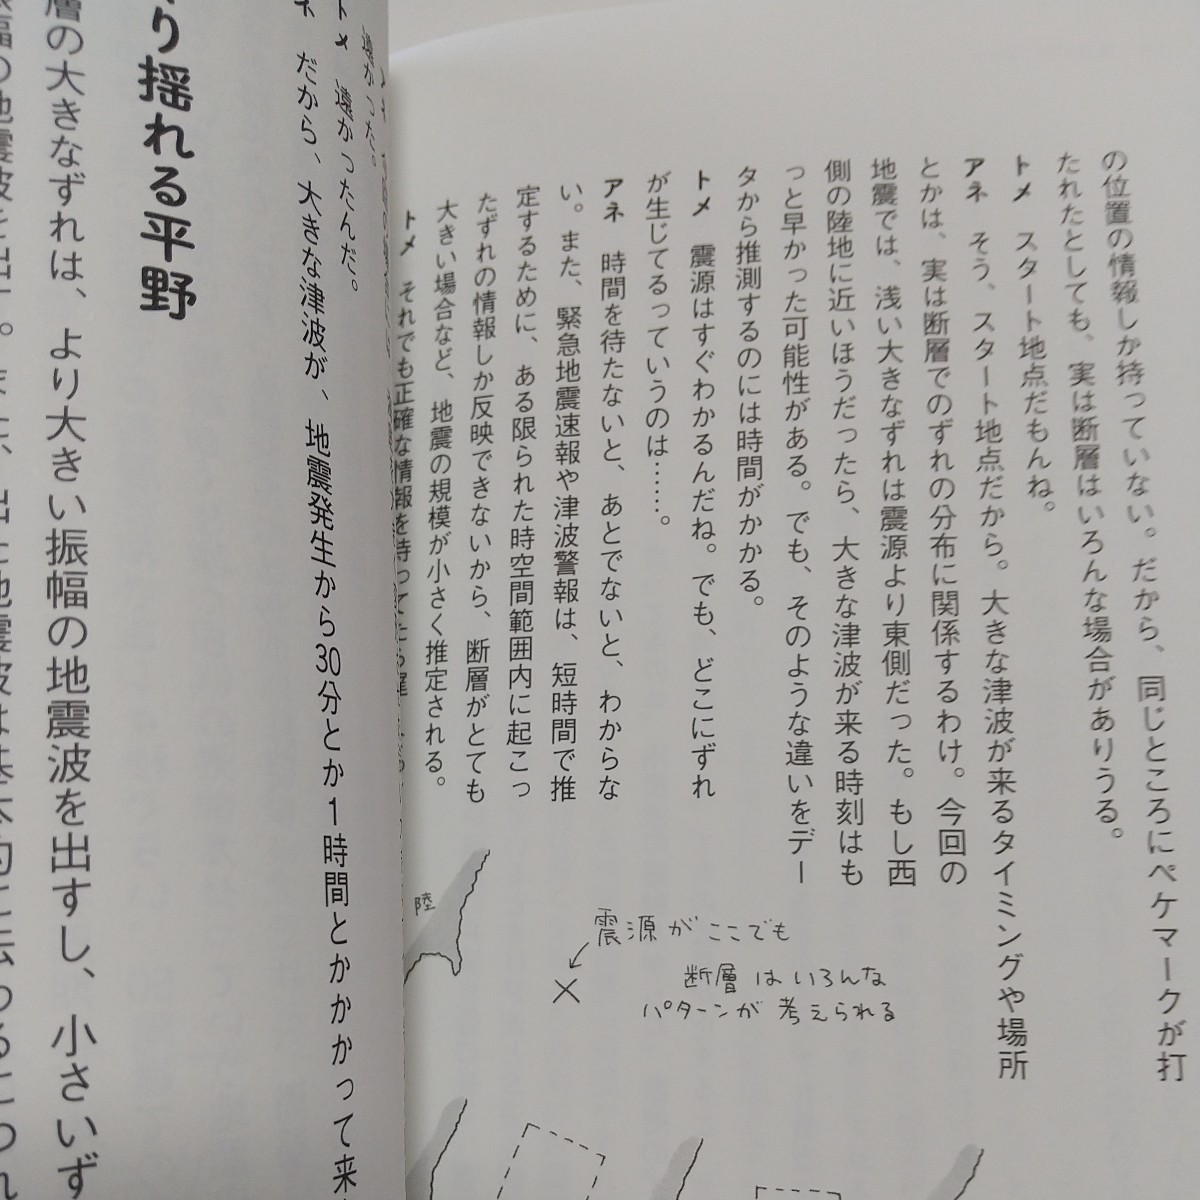 の位置の情報しか持っていない。だから、同じところにペケマークが打
たれたとしても、実は断層はいろんな場合がありうる。
トメ　スタート地点だもんね。
アネ　そう、スタート地点だから。大きな津波が来るタイミングや場所
とかは、実は断層でのずれの分布に関係するわけ。今回の
地震では、浅い大きなずれは震源より東側だった。もし西
側の陸地に近いほうだったら、大きな津波が来る時刻はも
っと早かった可能性がある。でも、そのような違いをデー
タから推測するのには時間がかかる。
トメ　震源はすぐわかるんだね。でも、どこにずれ
が生じてるっていうのは……。
アネ　時間を待たないと、あとでないと、わからな
い。また、緊急地震速報や津波警報は、短時間で推
定するために、ある限られた時空間範囲内に起こっ
たずれの情報しか反映できないから、断層がとても
大きい場合など、地震の規模が小さく推定される。
トメ　それでも正確な情報を待ってたら遅
震源がここでも
断層はいろんな
パターンが考えられる
陸
遠かった。
トメ　遠かったんだ。
ネ　だから、大きな津波が、地震発生から30分とか1時間とかかかって来
り揺れる平野
層の大きなずれは、より大きい振幅の地震波を出すし、小さいず
振幅の地震波を出す。また、出た地震波は基本的に伝わるにつれ